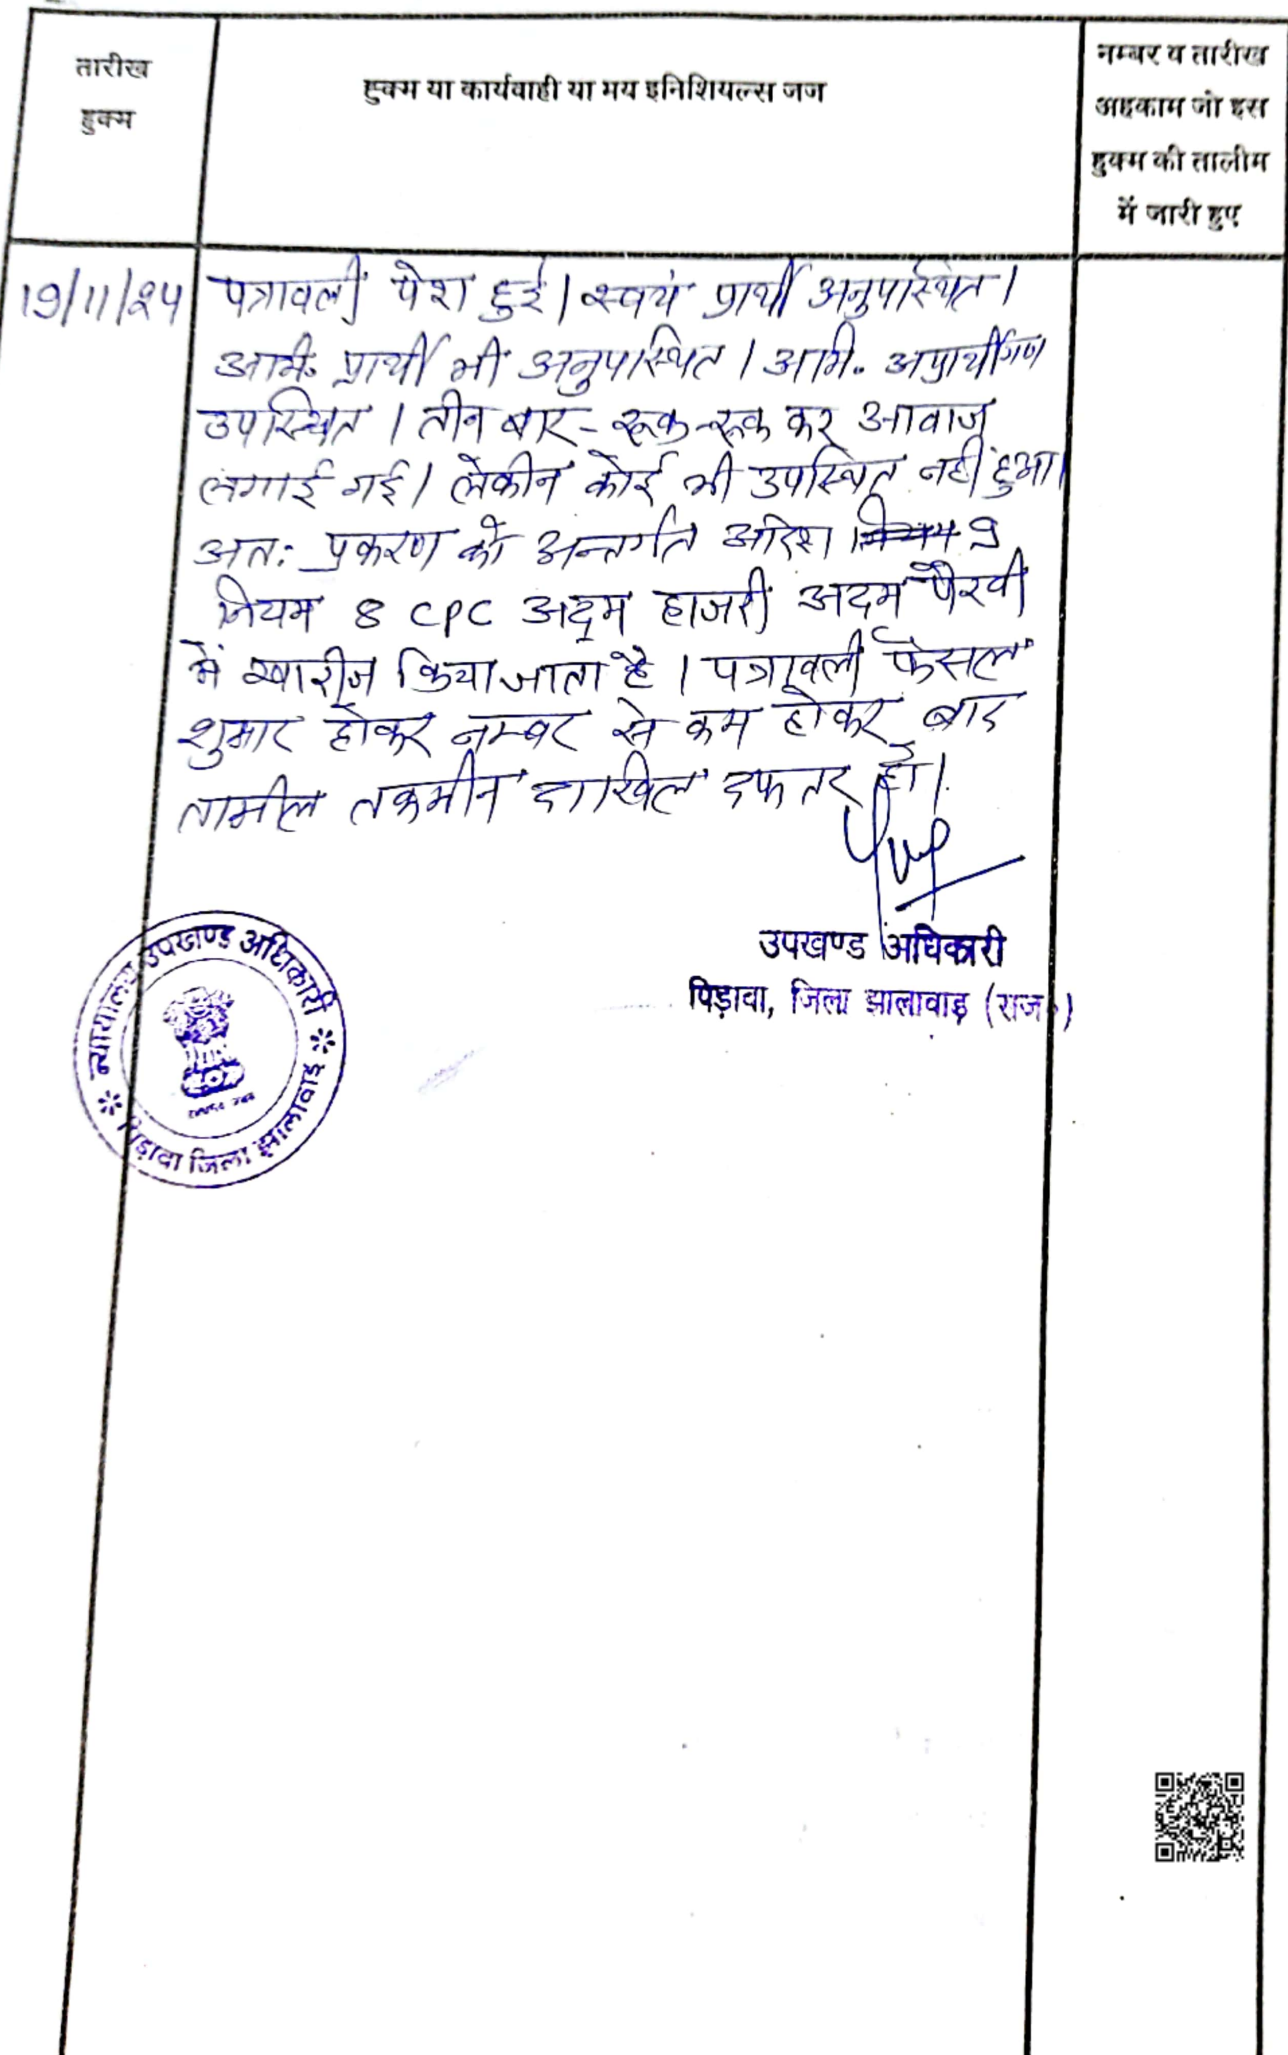 तारीख
हुक्म
हुक्म या कार्यवाही या मय इनिशियल्स जज
नम्बर व तारीख
अहकाम जो इस
हुक्म की तालीम
में जारी हुए
19/11/24
पत्रावली पेश हुई। स्वयं प्रार्थी अनुपस्थित।
अभि. प्रार्थी भी अनुपस्थित। अभि. अप्रार्थीगण
उपस्थित। तीन बार - रूक-रूक कर आवाज
लगाई गई। लेकीन कोई भी उपस्थित नहीं हुआ।
अतः प्रकरण को अन्तर्गत आदेश नियम 9
नियम 8 CPC अदम हाजरी अदम पैरवी
में खारीज किया जाता है। पत्रावली फैसल
शुमार होकर नम्बर से कम होकर बाद
तामील तकमील दाखिल दफतर हो।
उपखण्ड अधिकारी
पिड़ावा, जिला झालावाड़ (राज०)
न्यायालय उपखण्ड अधिकारी
पिड़ावा जिला झालावाड़